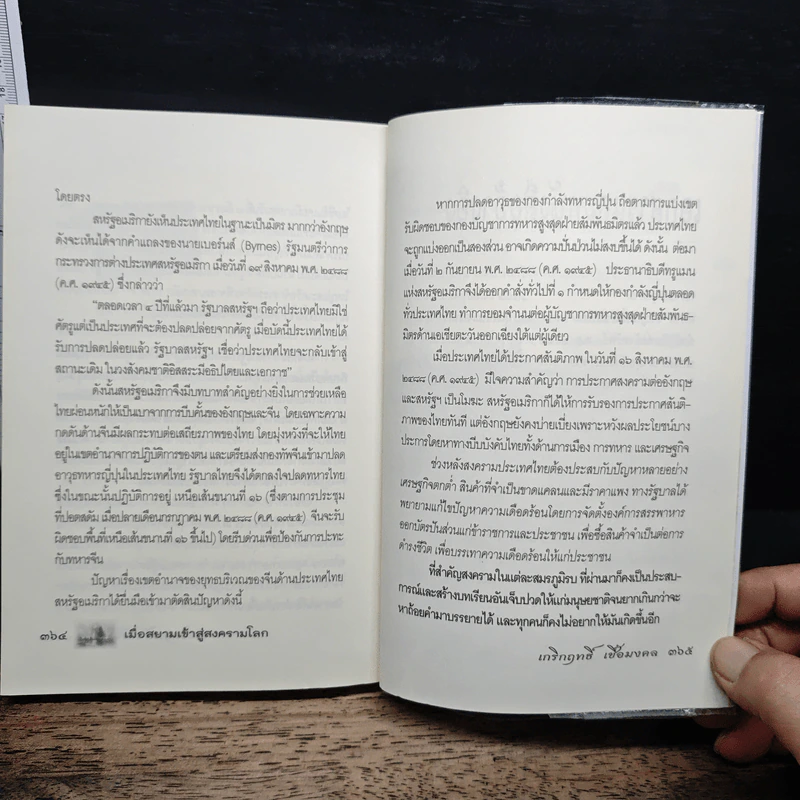 โดยตรง
สหรัฐอเมริกายังเห็นประเทศไทยในฐานะเป็นมิตร มากกว่าอังกฤษ
ดังจะเห็นได้จากคำแถลงของนายเบอร์นส์ (Byrnes) รัฐมนตรีว่าการ
กระทรวงการต่างประเทศสหรัฐอเมริกา เมื่อวันที่ ๑๙ สิงหาคม พ.ศ. ๒๔๘๘
(ค.ศ. ๑๙๔๕) ซึ่งกล่าวว่า
"ตลอดเวลา ๔ ปีที่แล้วมา รัฐบาลสหรัฐฯ ถือว่าประเทศไทยมิใช่
ศัตรูแต่เป็นประเทศที่จะต้องปลดปล่อยจากศัตรู เมื่อบัดนี้ประเทศไทยได้
รับการปลดปล่อยแล้ว รัฐบาลสหรัฐฯ เชื่อว่าประเทศไทยจะกลับเข้าสู่
สถานะเดิม ในวงสังคมชาติอิสสระมีอธิปไตยและเอกราช"
ดังนั้นสหรัฐอเมริกาจึงมีบทบาทสำคัญอย่างยิ่งในการช่วยเหลือ
ไทยผ่อนหนักให้เป็นเบาจากการบีบคั้นของอังกฤษและจีน โดยเฉพาะความ
กดดันด้านจีนมีผลกระทบต่อเสถียรภาพของไทย โดยมุ่งหวังที่จะให้ไทย
อยู่ในเขตอำนาจการปฏิบัติการของตน และเตรียมส่งกองทัพจีนเข้ามาปลด
อาวุธทหารญี่ปุ่นในประเทศไทย รัฐบาลไทยจึงได้ตกลงใจปลดทหารไทย
ซึ่งในขณะนั้นปฏิบัติการอยู่ เหนือเส้นขนานที่ ๑๖ (ซึ่งตามการประชุม
ที่ปอตสดัม เมื่อปลายเดือนกรกฎาคม พ.ศ. ๒๔๘๘ (ค.ศ. ๑๙๔๕) จีนจะรับ
ผิดชอบพื้นที่เหนือเส้นขนานที่ ๑๖ ขึ้นไป) โดยรีบด่วนเพื่อป้องกันการปะทะ
กับทหารจีน
ปัญหาเรื่องเขตอำนาจของยุทธบริเวณของจีนด้านประเทศไทย
สหรัฐอเมริกาได้ยื่นมือเข้ามาตัดสินปัญหาดังนี้
๓๖๔ เมื่อสยามเข้าสู่สงครามโลก
หากการปลดอาวุธของกองกำลังทหารญี่ปุ่น ถือตามการแบ่งเขต
รับผิดชอบของกองบัญชาการทหารสูงสุดฝ่ายสัมพันธมิตรแล้ว ประเทศไทย
จะถูกแบ่งออกเป็นสองส่วน อาจเกิดความปั่นป่วนไม่สงบขึ้นได้ ดังนั้น ต่อมา
เมื่อวันที่ ๒ กันยายน พ.ศ. ๒๔๘๘ (ค.ศ. ๑๙๔๕) ประธานาธิบดีทรูแมน
แห่งสหรัฐอเมริกาจึงได้ออกคำสั่งทั่วไปที่ ๑ กำหนดให้กองกำลังญี่ปุ่นตลอด
ทั่วประเทศไทย ทำการยอมจำนนต่อผู้บัญชาการทหารสูงสุดฝ่ายสัมพันธ-
มิตรด้านเอเชียตะวันออกเฉียงใต้แต่ผู้เดียว
เมื่อประเทศไทยได้ประกาศสันติภาพ ในวันที่ ๑๖ สิงหาคม พ.ศ.
๒๔๘๘ (ค.ศ. ๑๙๔๕) มีใจความสำคัญว่า การประกาศสงครามต่ออังกฤษ
และสหรัฐฯ เป็นโมฆะ สหรัฐอเมริกาก็ได้ให้การรับรองการประกาศสันติ-
ภาพของไทยทันที แต่อังกฤษยังคงบ่ายเบี่ยงเพราะหวังผลประโยชน์บาง
ประการโดยหาทางบีบบังคับไทยทั้งด้านการเมือง การทหาร และเศรษฐกิจ
ช่วงหลังสงครามประเทศไทยต้องประสบกับปัญหาหลายอย่าง
เศรษฐกิจตกต่ำ สินค้าที่จำเป็นขาดแคลนและมีราคาแพง ทางรัฐบาลได้
พยายามแก้ไขปัญหาความเดือดร้อนโดยการจัดตั้งองค์การสรรพาหาร
ออกบัตรปันส่วนแก่ข้าราชการและประชาชน เพื่อซื้อสินค้าจำเป็นต่อการ
ดำรงชีวิต เพื่อบรรเทาความเดือดร้อนให้แก่ประชาชน
ที่สำคัญสงครามในแต่ละสมรภูมิรบ ที่ผ่านมาก็คงเป็นประสบ-
การณ์และสร้างบทเรียนอันเจ็บปวดให้แก่มนุษยชาติจนยากเกินกว่าจะ
หาถ้อยคำมาบรรยายได้ และทุกคนก็คงไม่อยากให้มันเกิดขึ้นอีก
เกริกฤทธิ์ เชื้อมงคล ๓๖๕